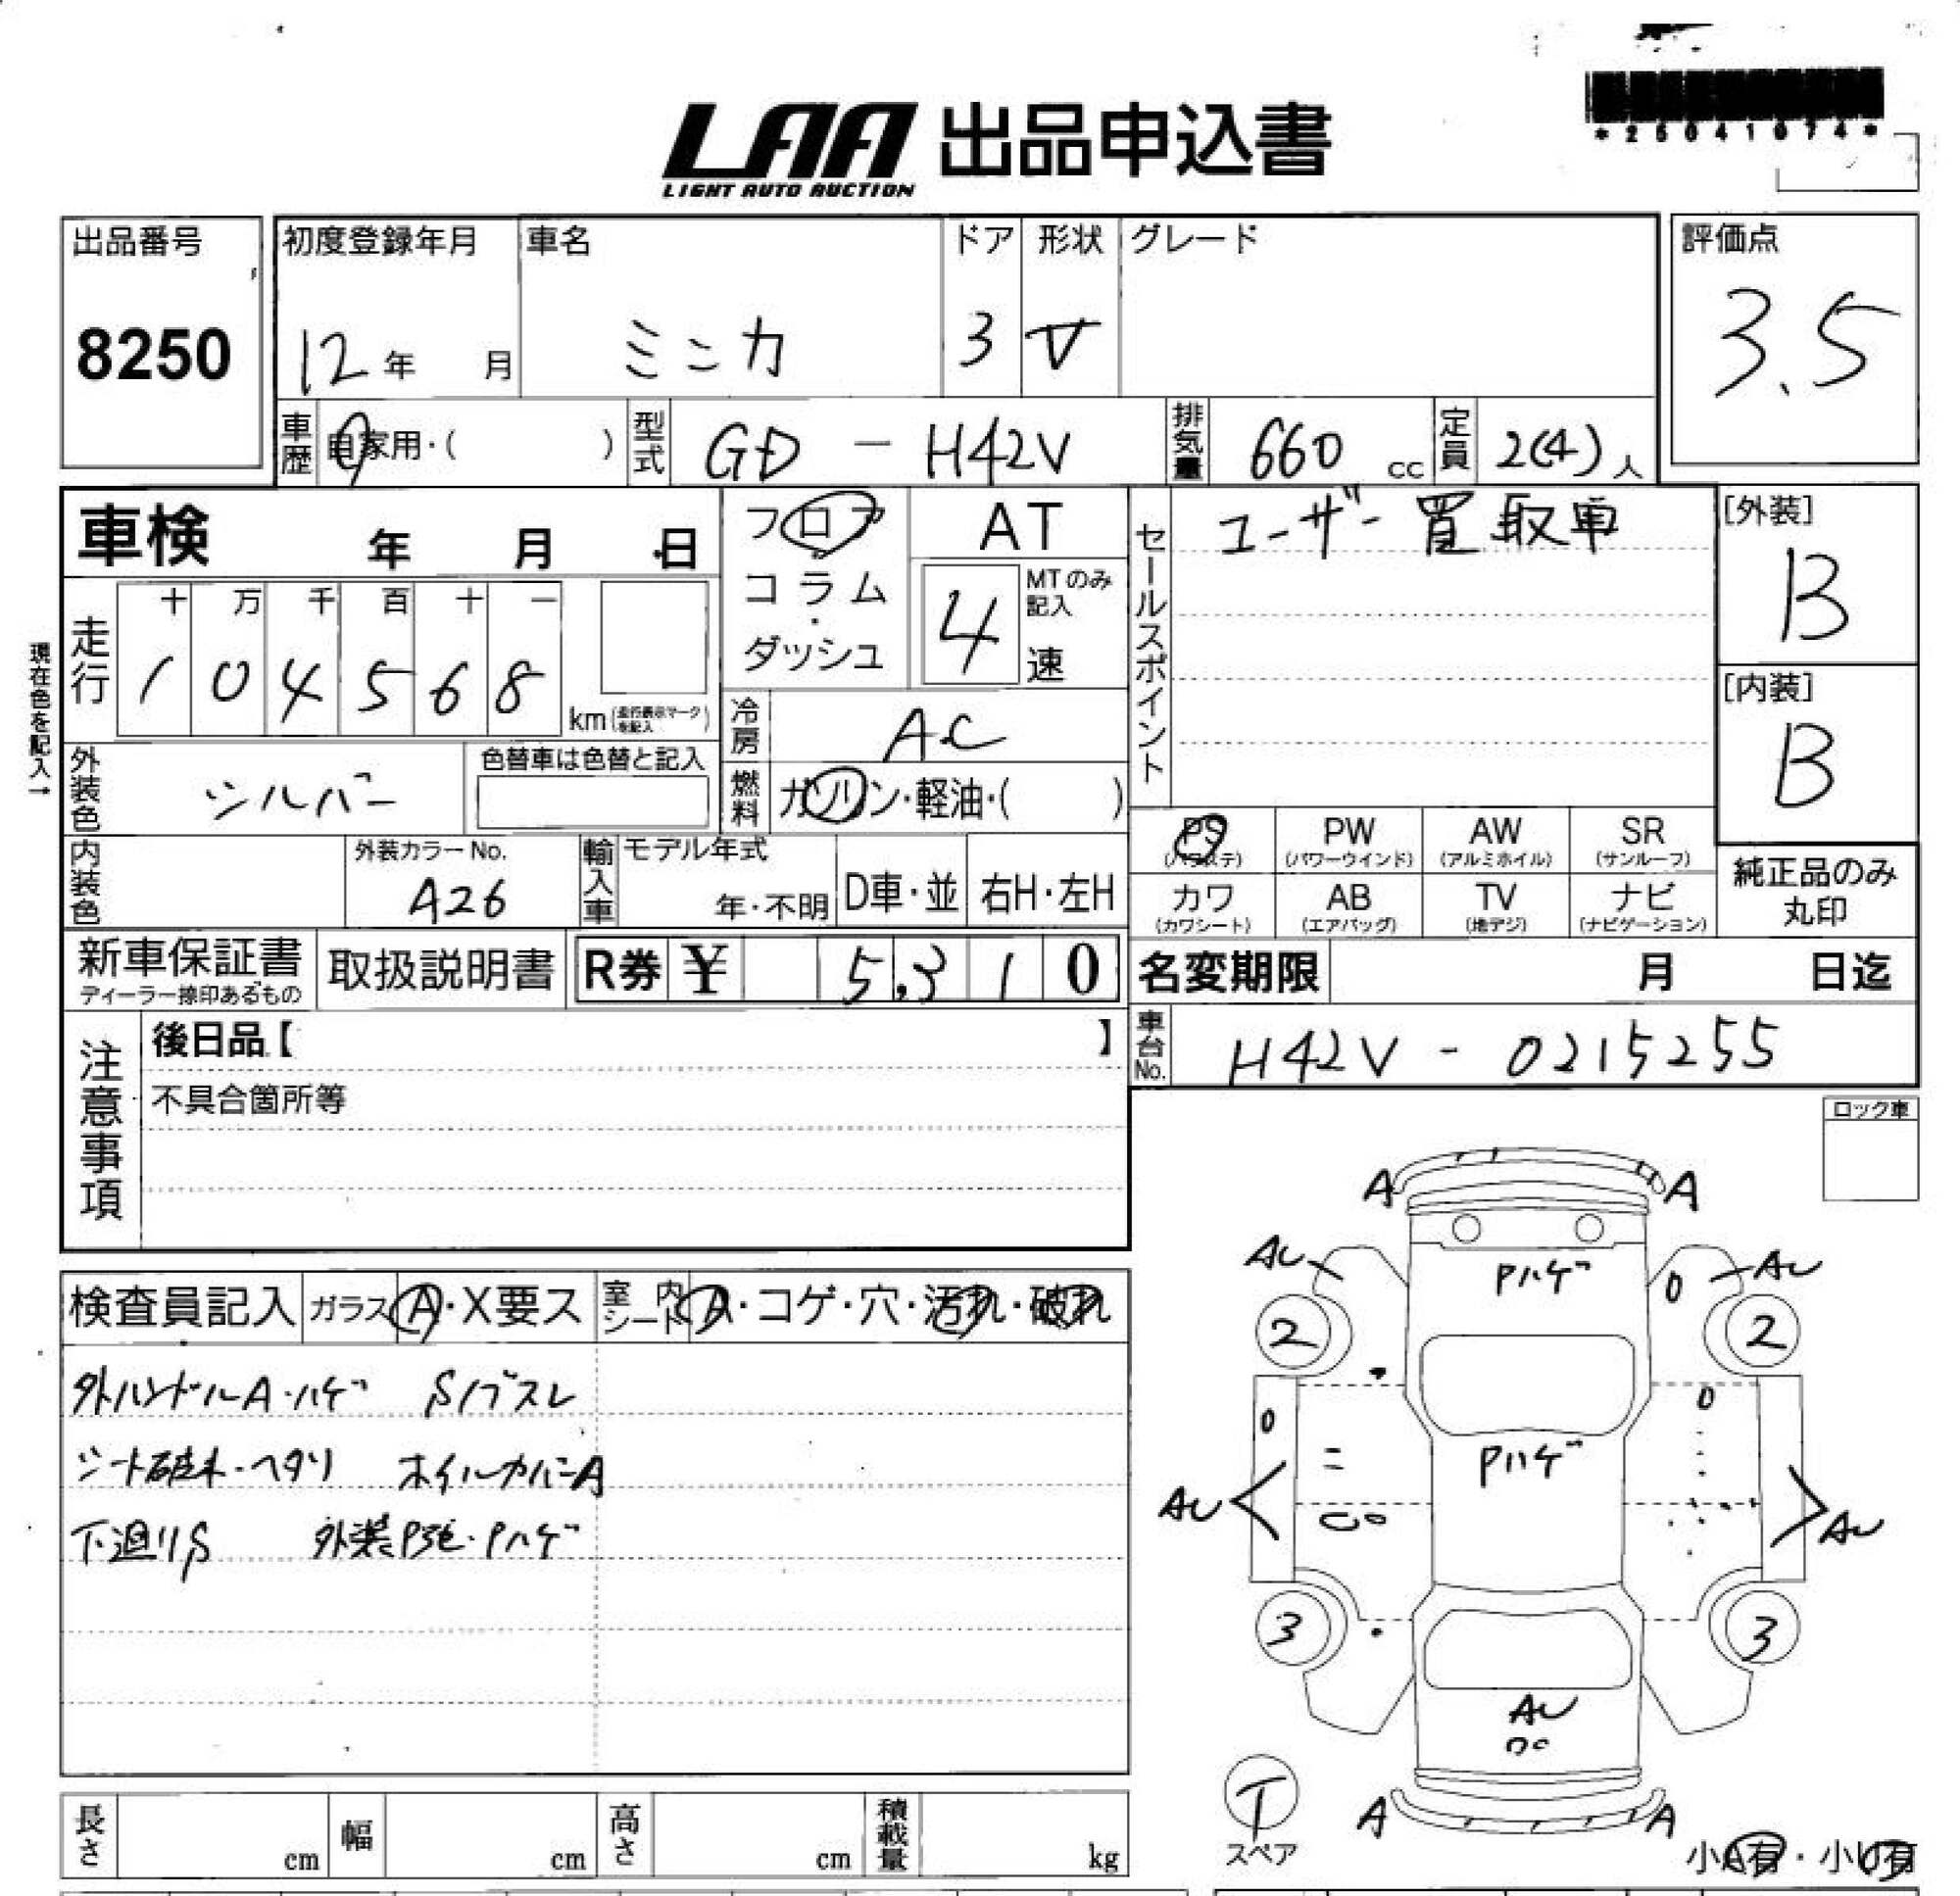 *25041074*
LAA 出品申込書
LIGHT AUTO AUCTION
出品番号
8250
初度登録年月
12年 月
車名
ミニカ
ドア
3
形状
V
グレード
評価点
3.5
車歴 自家用・( )
型式 GD - H42V
排気量 660 cc
定員 2(4) 人
車検 年 月 日
フロア
コラム
ダッシュ
AT
4
MTのみ記入
速
セールスポイント
ユーザー買取車
[外装]
B
[内装]
B
現在色を記入→
走行
十 万 千 百 十 一
1 0 4 5 6 8
km (走行表示マークを記入)
冷房 AC
燃料 ガソリン・軽油・( )
外装色 シルバー
色替車は色替と記入
内装色
外装カラーNo.
A26
輸入車
モデル年式
年・不明
D車・並
右H・左H
PS (パワステ)
PW (パワーウインド)
AW (アルミホイル)
SR (サンルーフ)
カワ (カワシート)
AB (エアバッグ)
TV (地デジ)
ナビ (ナビゲーション)
純正品のみ
丸印
新車保証書
ディーラー捺印あるもの
取扱説明書
R券 ¥ 5,310
名変期限 月 日迄
車台No. H42V - 0215255
注意事項
後日品【 】
不具合箇所等
ロック車
検査員記入
ガラス A・X要ス
室内シート A・コゲ・穴・汚れ・破れ
外ハンドルA・ハゲ Sノブスレ
シート破れ・ヘタリ ホイルカバーA
下廻りS 外装P色・Pハゲ
A A
AU AU
Pハゲ
2 2
Pハゲ
AU AU
3 3
AU
T
スペア
A A
小A有・小U有
長さ cm
幅 cm
高さ cm
積載量 kg